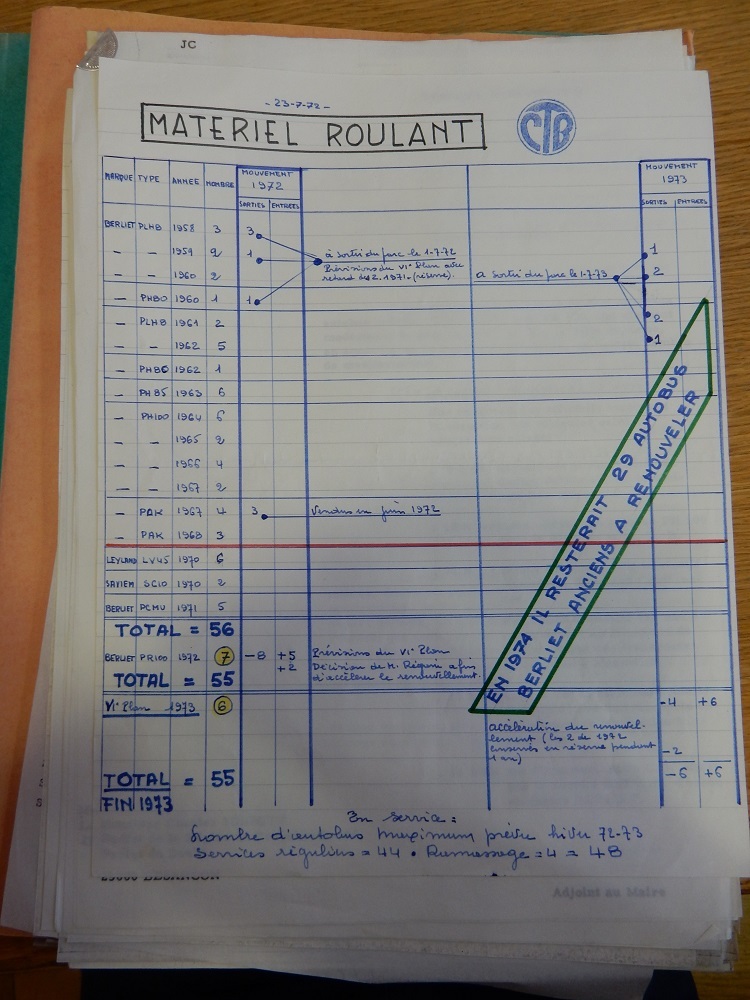 JC
- 23-7-72 -
MATERIEL ROULANT
CTB
MARQUE TYPE ANNÉE NOMBRE MOUVEMENT 1972 MOUVEMENT 1973
SORTIES ENTRÉES SORTIES ENTRÉES
BERLIET PLHB 1958 3 3
— — 1959 2 1 à sortir du parc le 1-7-72 1
Prévisions du VIe Plan avec
— — 1960 2 retard de 2.1971. (réserve). à sortir du parc le 1-7-73 2
— PHBO 1960 1 1
— PLHB 1961 2 2
— — 1962 5 1
— PHBO 1962 1
— PH85 1963 6
— PH100 1964 6
— — 1965 2
— — 1966 4
— — 1967 2
— PAK 1967 4 3 Vendus en juin 1972
— PAK 1968 3
LEYLAND LV45 1970 6
SAVIEM SC10 1970 2
BERLIET PCMU 1971 5
TOTAL = 56
BERLIET PR100 1972 7 -8 +5 Prévisions du VIe Plan
+2 Décision de M. afin
TOTAL = 55 d'accélérer le renouvellement.
EN 1974 IL RESTERAIT 29 AUTOBUS
BERLIET ANCIENS A RENOUVELER
VIe Plan 1973 6 -4 +6
accélération du renouvel-
lement (les 2 de 1972
conservés en réserve pendant -2
1 an)
TOTAL = 55 -6 +6
FIN 1973
En service :
Nombre d'autobus maximum prévu hiver 72-73
Services réguliers = 44 • Ramassage = 4 = 48
25000 BESANCON
Adjoint au Maire